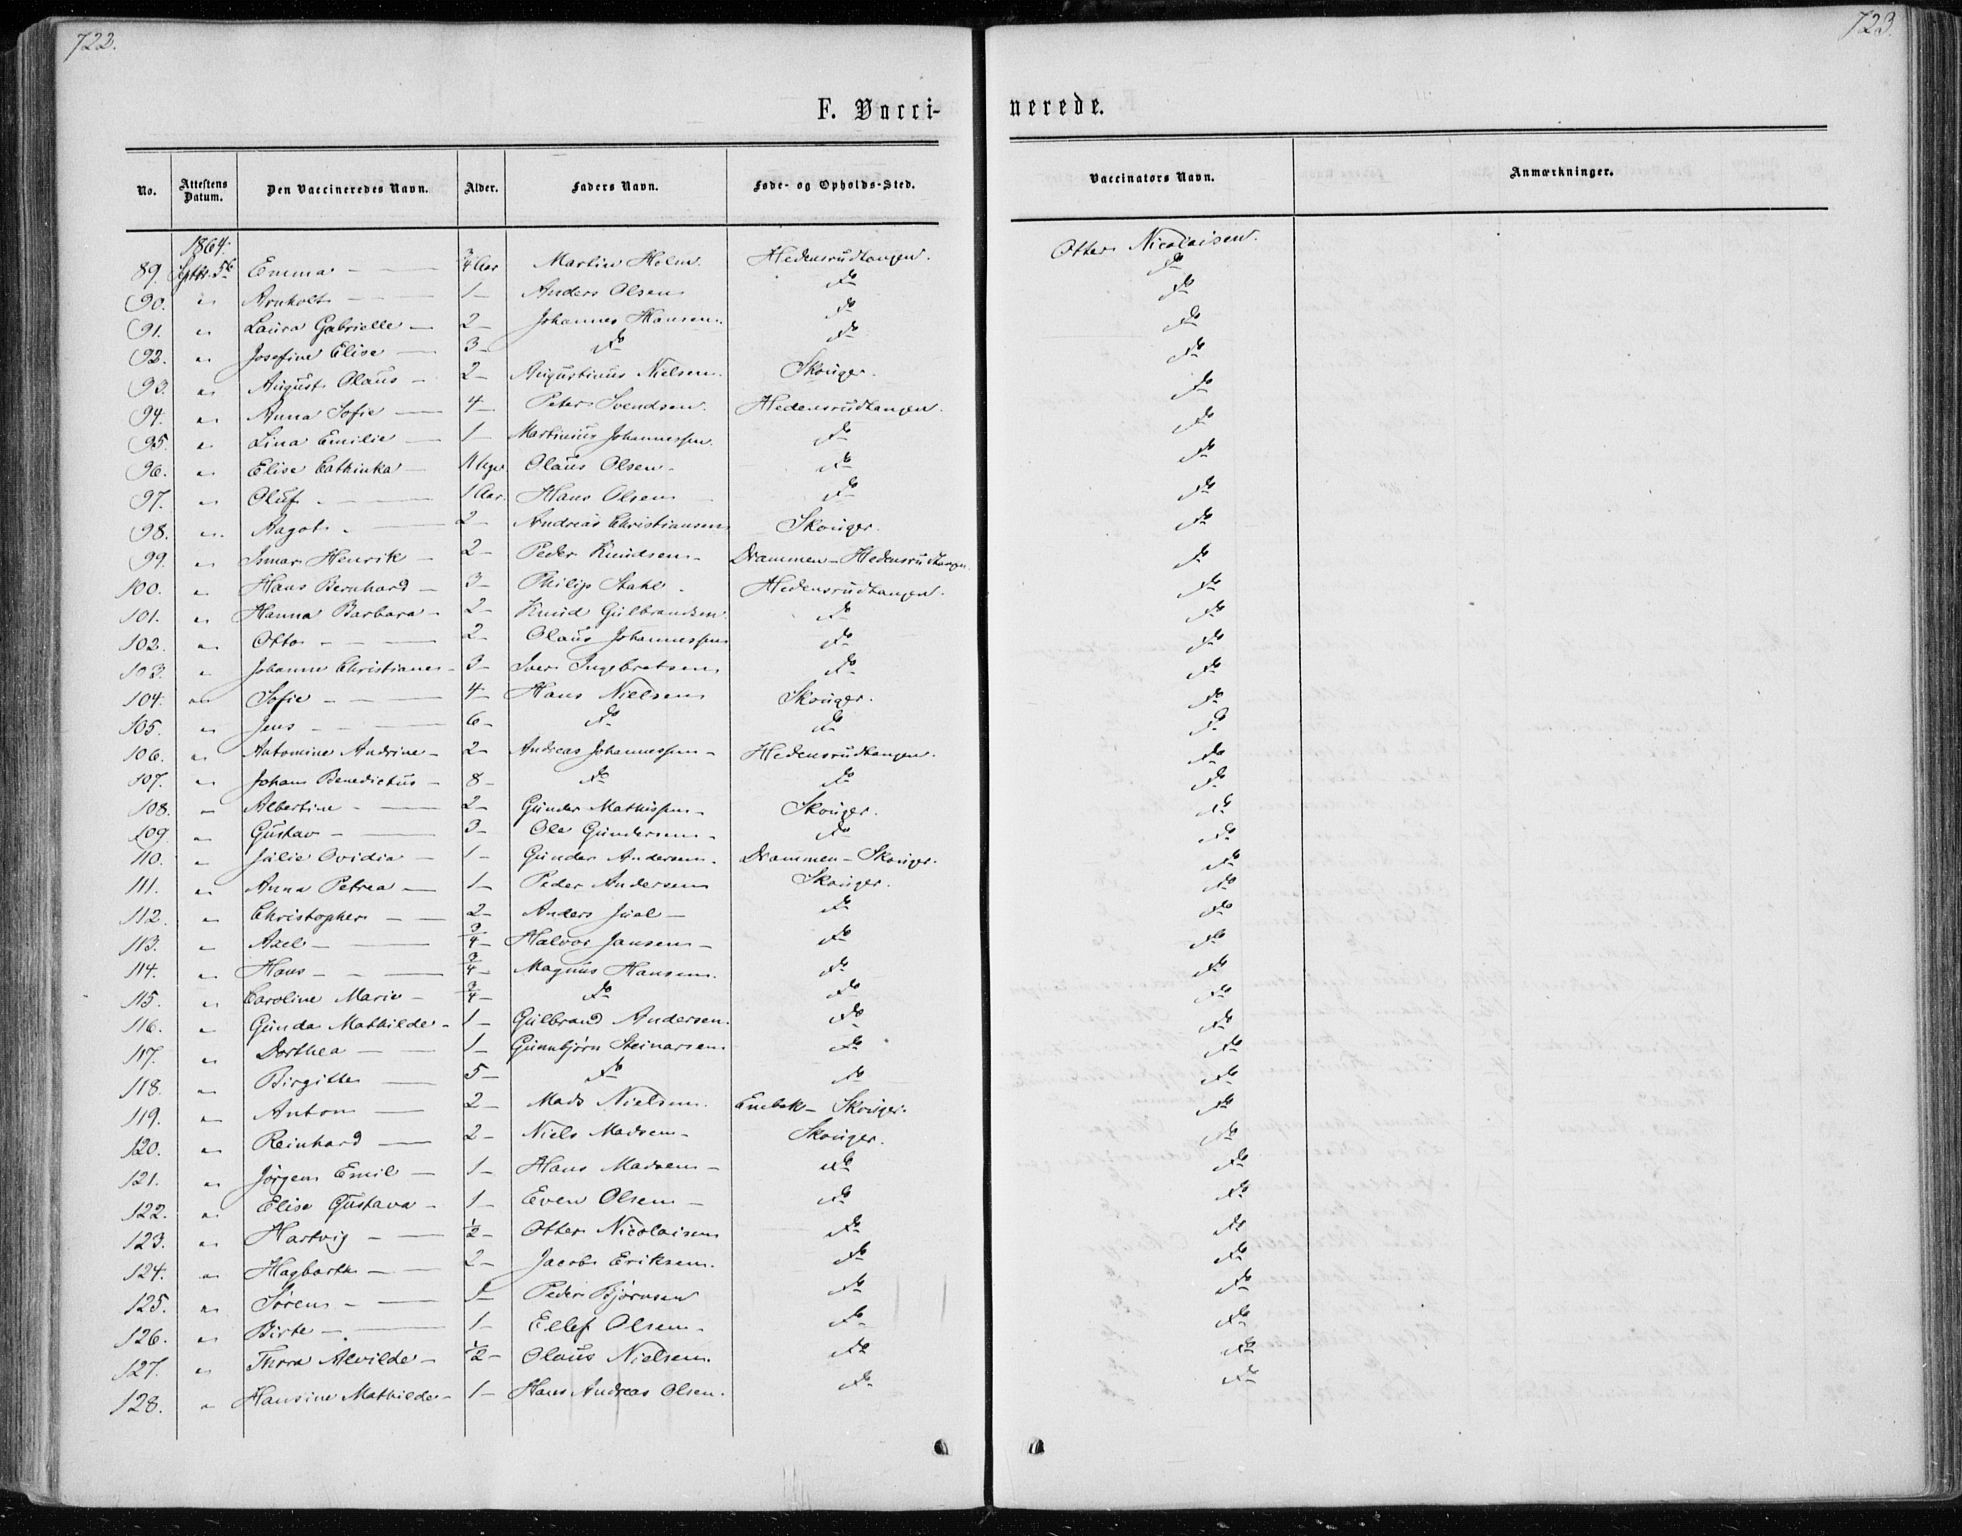 722.
723.
F. Vacci-
nerede.
No. Attestens Datum. Den Vaccineredes Navn. Alder. Faders Navn. Føde- og Opholds-Sted. Vaccinators Navn. Anmærkninger.
1864.
89. Emma - 3/4 Aar Martin Holm Hedensrudtangen. Otter Nicolaisen.
90. " Arnholt - 1 - Anders Olsen Do Do
91. " Laura Gabrielle - 2 - Johannes Hansen. Do Do
92. " Josefine Elise - 3 - Do Do Do
93. " August Olaus - 2 - Augustinus Nielsen. Skouger. Do
94. " Anna Sofie - 4 - Peter Svendsen. Hedensrudtangen. Do
95. " Lina Emilie - 1 - Martinius Johannessen. Do Do
96. " Elise Cathinka - Olaus Olsen - Do Do
97. " Oluf - 1 Aar. Hans Olsen Do Do
98. " Aagot - 2 - Andreas Christiansen Skouger. Do
99. " Ismar Henrik - 2 - Peder Knudsen - Drammen - Hedensrudtangen. Do
100. " Hans Bernhard - 3 - Philip Stahl - Hedensrudtangen. Do
101. " Hanna Barbara - 2 - Knud Gulbrandsen Do Do
102. " Otto - 2 - Olaus Johannessen Do Do
103. " Johanne Christiane - 3 - Iver Ingebretsen Do Do
104. " Sofie - 4 - Hans Nielsen Skouger. Do
105. " Jens - 6 - Do Do Do
106. " Antomine Andrine - 2 - Andreas Johannessen - Hedensrudtangen. Do
107. " Johan Benedictus - 8 - Do Do Do
108. " Albertine - 2 - Gunder Mathissen - Skouger. Do
109. " Gustav - 3 - Ole Gundersen - Do Do
110. " Julie Ovidia - 1 - Gunder Andersen. Drammen - Skouger. Do
111. " Anna Petrea - 1 - Peder Andersen Skouger. Do
112. " Christopher - 2 - Anders Juel - Do Do
113. " Axel - 3/4 - Halvor Jansen - Do Do
114. " Hans - 3/4 - Magnus Hansen. Do Do
115. " Caroline Marie - 3/4 - Do Do Do
116. " Gunda Mathilde - 1 - Gulbrand Andersen. Do Do
117. " Dorthea - 1 - Gunnbjørn Steinarsen Do Do
118. " Birgitte - 5 - Do Do Do
119. " Anton - 2 - Mads Nielsen. Skouger. Do
120. " Reinhard - 2 - Niels Madsen - Skouger. Do
121. " Jørgen Emil - 1 - Hans Madsen - Do Do
122. " Elise Gustava - 1 - Even Olsen - Do Do
123. " Hartvig - 1/2 - Otter Nicolaisen Do Do
124. " Hagbarth - 2 - Jacob Eriksen. Do Do
125. " Søren - Peder Bjørnsen Do Do
126. " Birte - 1 - Ellef Olsen - Do Do
127. " Thora Alvilde - 1/2 - Olaus Nielsen. Do Do
128. " Hansine Mathilde - 1 - Hans Andreas Olsen. Do Do